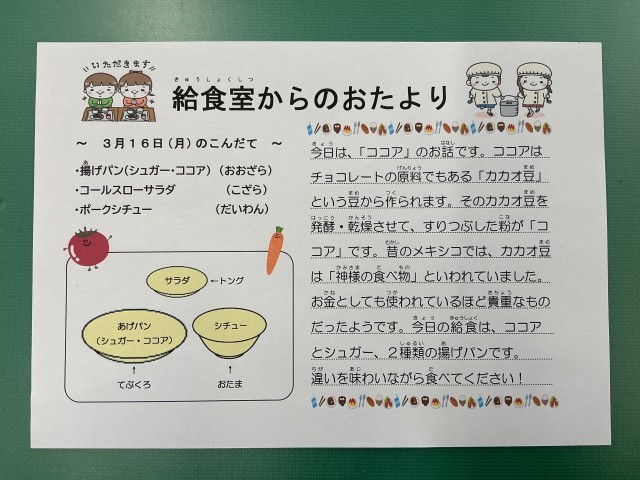 いただきます
給食室からのおたより
きゅうしょくしつ
～ 3月16日(月)のこんだて ～
・揚げパン(シュガー・ココア) (おおざら)
・コールスローサラダ (こざら)
・ポークシチュー (だいわん)
サラダ
←トング
あげパン
(シュガー・ココア)
シチュー
↑
てぶくろ
↑
おたま
今日は、「ココア」のお話です。ココアは
チョコレートの原料でもある「カカオ豆」
という豆から作られます。そのカカオ豆を
発酵・乾燥させて、すりつぶした粉が「コ
コア」です。昔のメキシコでは、カカオ豆
は「神様の食べ物」といわれていました。
お金としても使われているほど貴重なもの
だったようです。今日の給食は、ココア
とシュガー、2種類の揚げパンです。
違いを味わいながら食べてください！